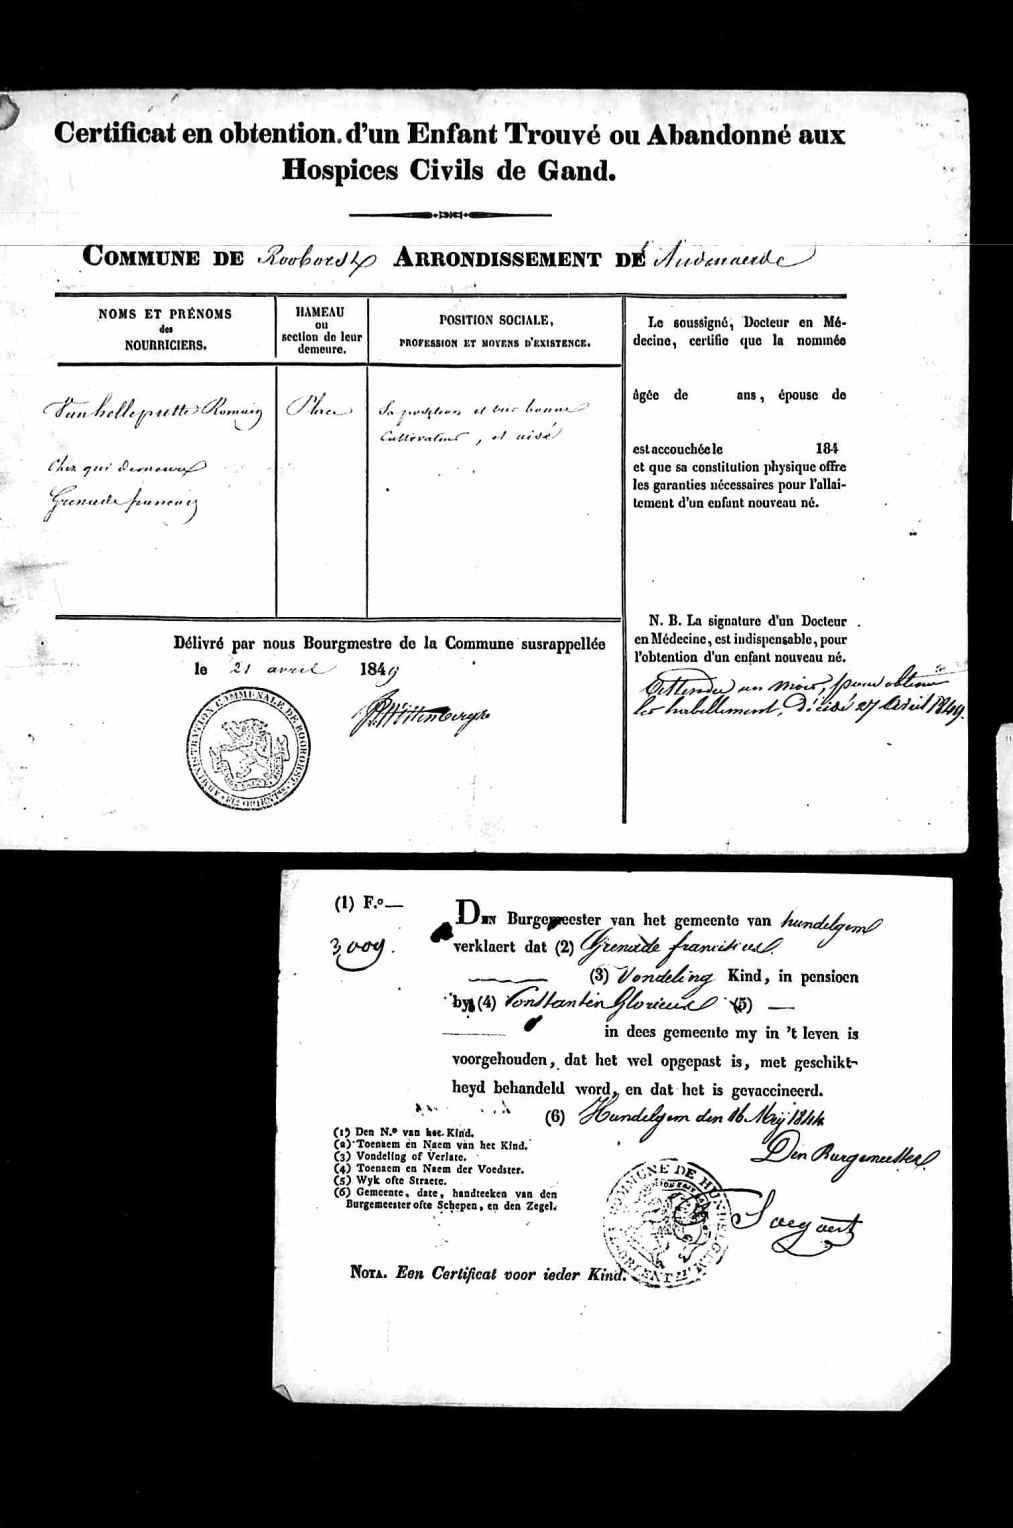 Certificat en obtention d'un Enfant Trouvé ou Abandonné aux
Hospices Civils de Gand.
COMMUNE DE Rooborst ARRONDISSEMENT DE Audenaerde
NOMS ET PRÉNOMS
des
NOURRICIERS.
HAMEAU
ou
section de leur
demeure.
POSITION SOCIALE,
PROFESSION ET MOYENS D'EXISTENCE.
Vanhelleputte Romain
Chez qui demeure
Grenade francois
Place
Sa position et une bonne
Cultivateur, et aisé
Le soussigné, Docteur en Mé-
decine, certifie que la nommée
âgée de ans, épouse de
est accouchée le 184
et que sa constitution physique offre
les garanties nécessaires pour l'allai-
tement d'un enfant nouveau né.
N. B. La signature d'un Docteur
en Médecine, est indispensable, pour
l'obtention d'un enfant nouveau né.
un mois, pour obtenir
les habillement, Décidé 27 Avril 1849.
Délivré par nous Bourgmestre de la Commune susrappellée
le 21 avril 1849
ADMINISTRATION COMMUNALE DE ROOBORST
(1) F.º—
3009.
DEN Burgemeester van het gemeente van hundelgem
verklaert dat (2) Grenade franciscus
(3) Vondeling Kind, in pensioen
by (4) Constantin Glorieux (5) —
in dees gemeente my in 't leven is
voorgehouden, dat het wel opgepast is, met geschikt-
heyd behandeld word, en dat het is gevaccineerd.
(6) Hundelgem den 16 Meij 1844
Den Burgemeester
(1) Den N.º van het Kind.
(2) Toenaem en Naem van het Kind.
(3) Vondeling of Verlate.
(4) Toenaem en Naem der Voedster.
(5) Wyk ofte Straete.
(6) Gemeente, date, handteeken van den
Burgemeester ofte Schepen, en den Zegel.
COMMUNE DE HUNDELGEM
Saegaert
NOTA. Een Certificat voor ieder Kind.